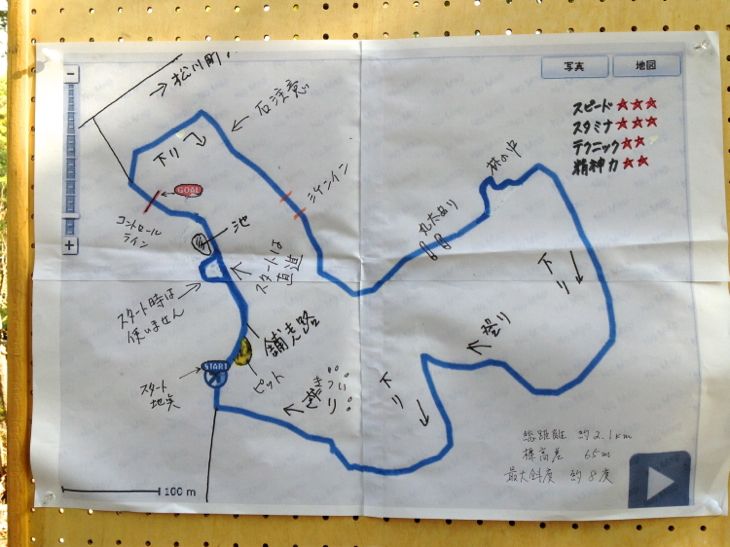 写真
地図
→松川町.
石注意
下り
スピード★★★
スタミナ★★★
テクニック★★
精神力★★
林の中
GOAL
コントロール
ライン
池
丸太あり
スタートは
直進
下り
スタート時は
使いません
登り
舗装路
START
ピット
スタート
地点
きつい
登り
下り
総距離 約2.1km
標高差 65m
最大斜度 約8度
100 m